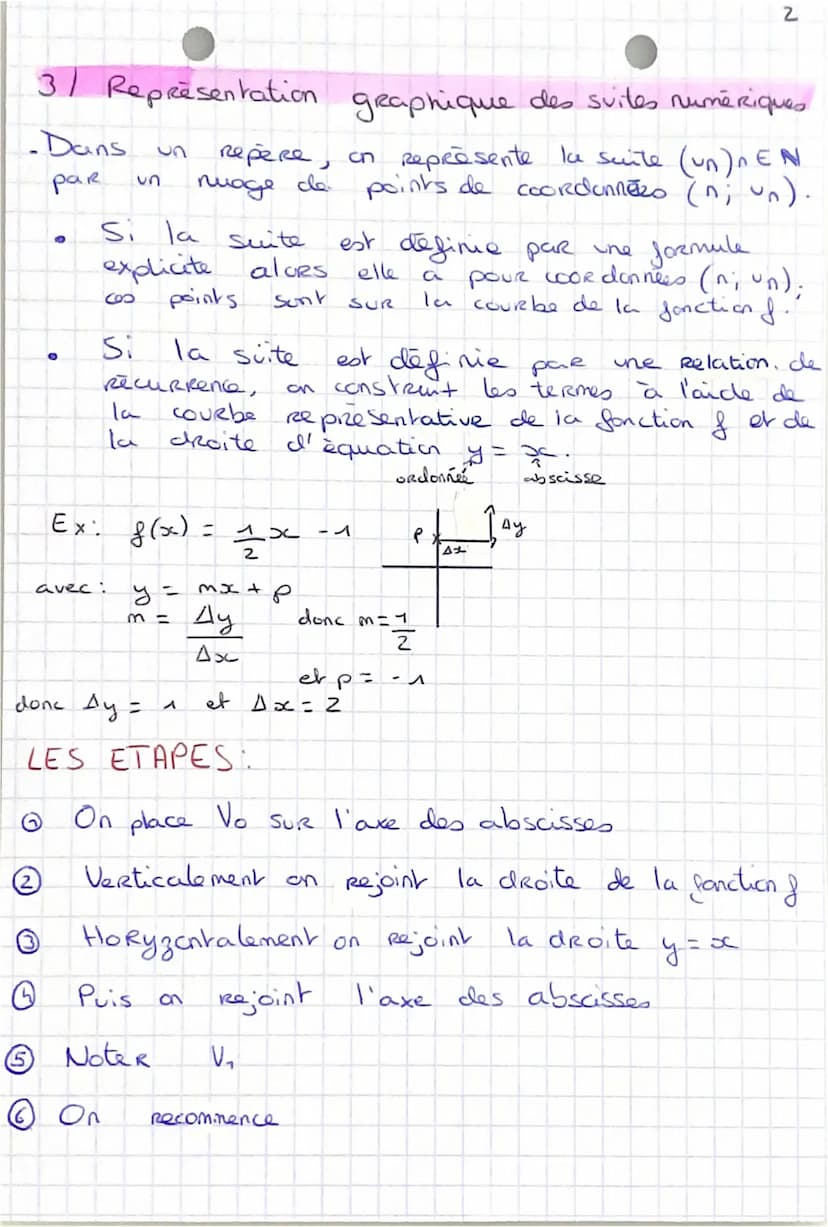 2
3/ Représentation graphique des suites numériques
- Dans un repère, on représente la suite (un)n ∈ N
par un nuage de points de coordonnées (n; un).
• Si la suite est définie par une formule
explicite alors elle a pour coordonnées (n; un);
ces points sont sur la courbe de la fonction f.
• Si la suite est définie par une relation de
récurrence, on construit les termes à l'aide de
la courbe représentative de la fonction f et de
la droite d'équation y = x.
ordonnée abscisse
Ex: f(x) = 1/2 x - 1
P Δx Δy
avec: y = mx + p
m = Δy/Δx donc m = 1/2
et p = -1
donc Δy = 1 et Δx = 2
LES ETAPES:
① On place V0 sur l'axe des abscisses
② Verticalement on rejoint la droite de la fonction f
③ Horyzontalement on rejoint la droite y = x
④ Puis on rejoint l'axe des abscisses
⑤ Noter V1
⑥ On recommence